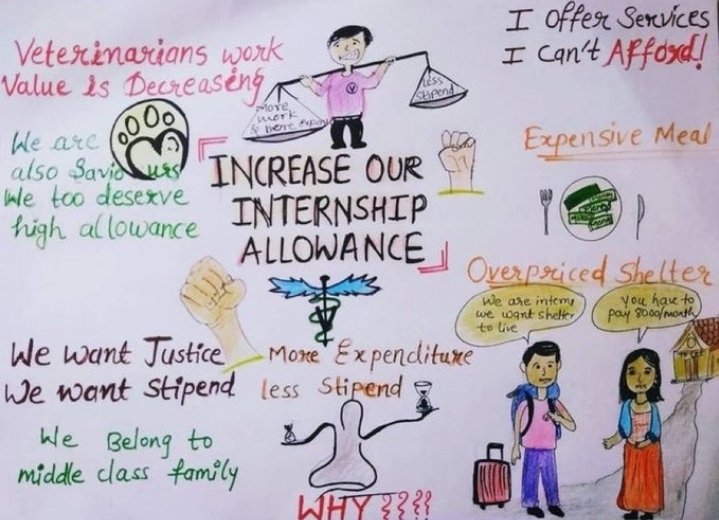 Veterinarians work
Value is Decreasing
More
work
less
Stipend
I Offer Services
I Can't Afford!
We are
also Saviours
We too deserve
high allowance
INCREASE OUR
INTERNSHIP
ALLOWANCE
Expensive Meal
Overpriced Shelter
We are interns
we want shelter
to live
You have to
pay 8000/month
TO LET
We want Justice
We want Stipend
More Expenditure
less Stipend
We Belong to
middle class family
WHY ????